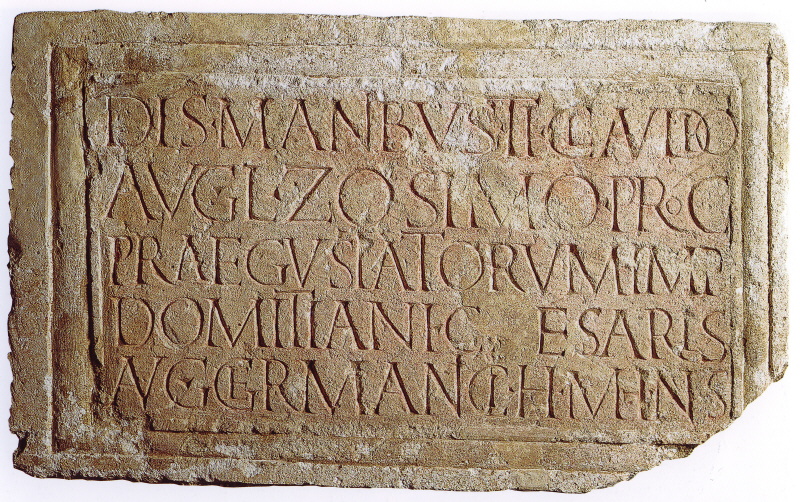 DIS·MANIBVS·TI·CLAVDIO
AVG·L·ZOSIMO·PROC
PRAEGVSTATORVM·IMP
DOMITIANI·C ESARIS
AVG·GERMANICI·H·M·H·N·S